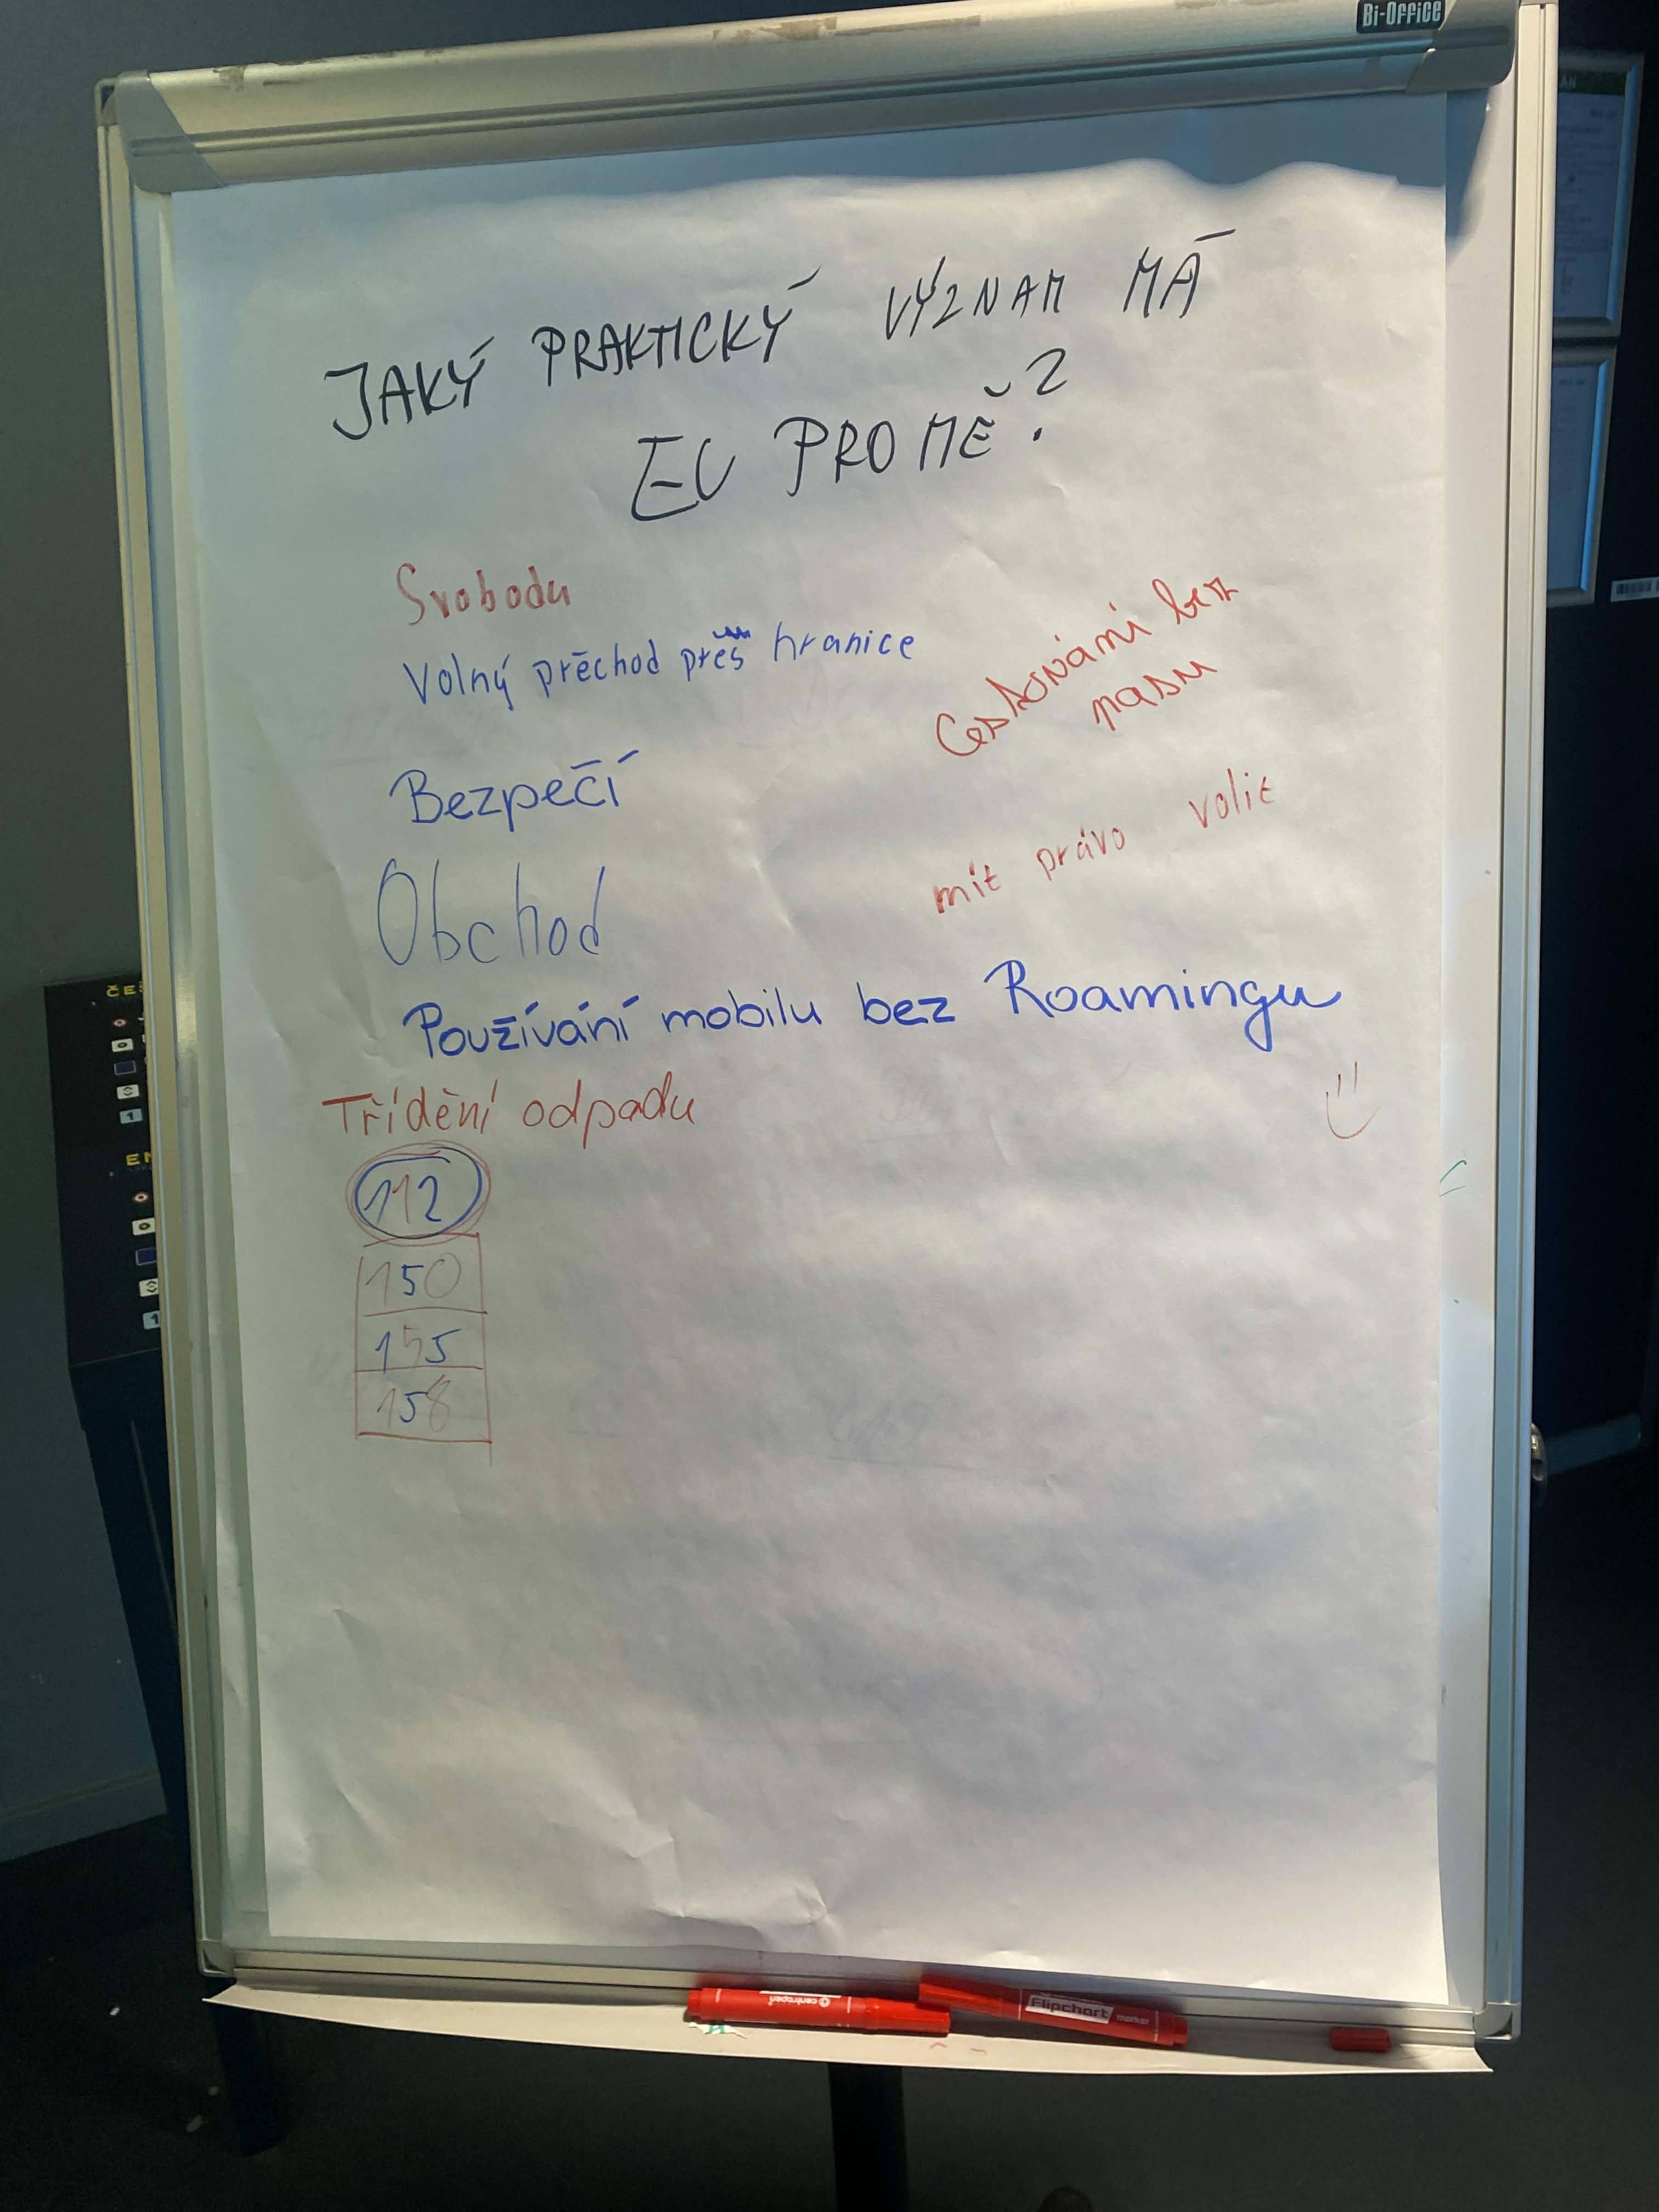 Bi-Office
JAKÝ PRAKTICKÝ VÝZNAM MÁ
EU PRO MĚ?
Svobodu
Volný přěchod přeš hranice
Cestování bez
pasu
Bezpečí
mít právo volit
Obchod
Používání mobilu bez Roamingu
Třídění odpadu
112
150
155
158
centropen
Flipchart
marker